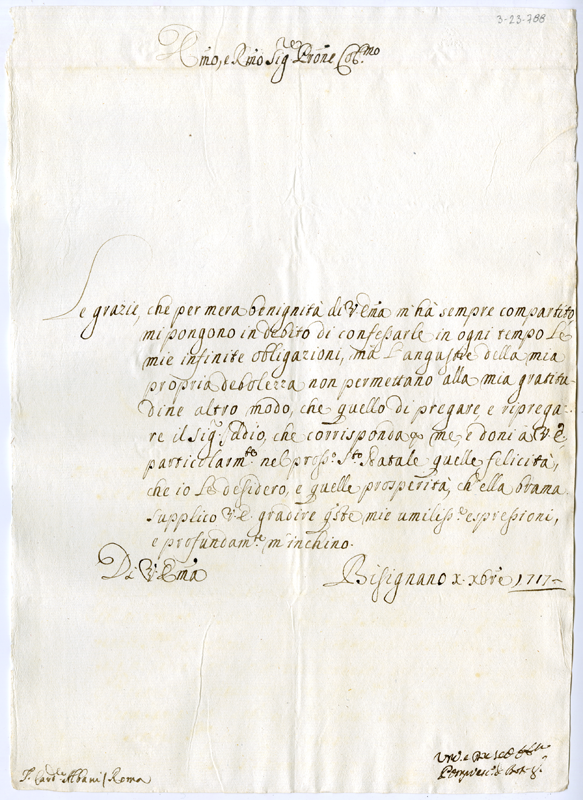 3-23-788
Emo, e Rmo Sigre Prone Colmo
Le grazie, che per mera benignità di V. Ema m'hà sempre compartito
mi pongono in debito di confessarle in ogni tempo le
mie infinite obligazioni, mà l'angustie della mia
propria debolezza non permettano alla mia gratitu-
dine altro modo, che quello di pregare, e riprega-
re il Sigr Iddio, che corrisponda p me, e doni à V. E.
particolarmte nel prosso Sto Natale quelle felicità,
che io Le desidero, e quelle prosperità, ch'ella brama
supplico V. E. gradire qste mie umilisse espressioni,
e profundamte m'inchino.
Di V. Ema
Bisignano x. xbre 1717
Sr. Cardle Albani / Roma